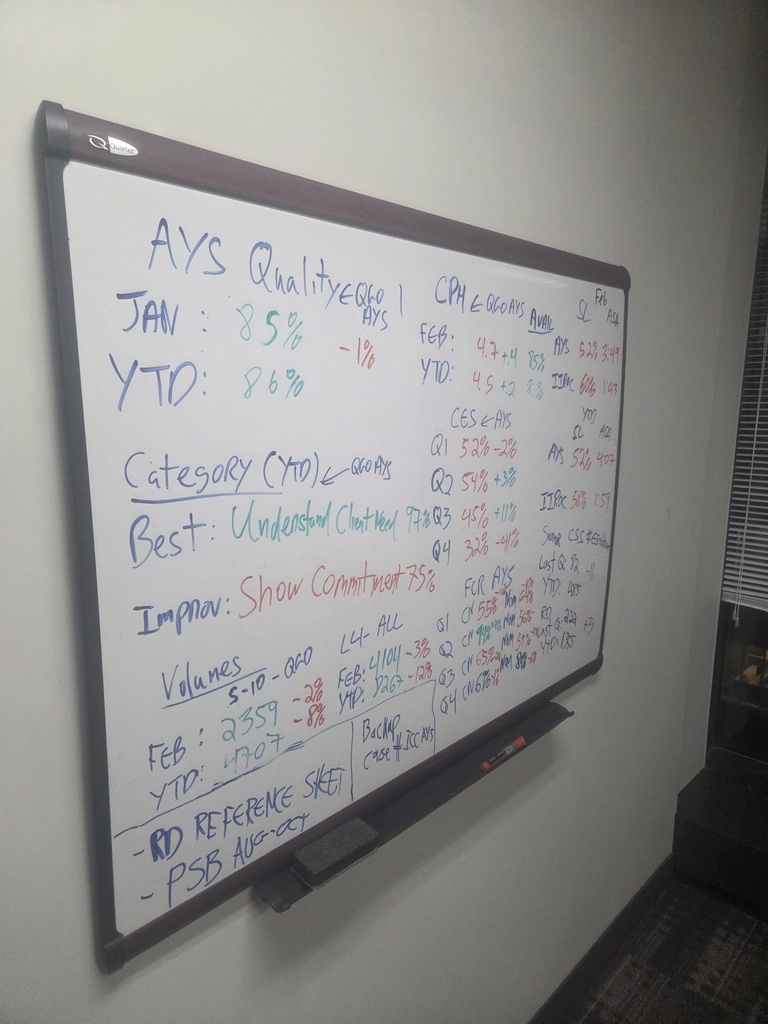 Quartet
AYS Quality ← QGO AYS
JAN: 85%
-1%
YTD: 86%
Category (YTD) ← QGO AYS
Best: Understand Client Need 97%
Improv: Show Commitment 75%
Volumes
5-10-QGO
FEB: 2359 -2%
YTD: 4707 -8%
L4-ALL
FEB: 4104 -3%
YTD: 8267 -12%
- RD REFERENCE SHEET
- PSB AUG-OCT
Backup
Case # ICC AYS
CPH ← QGO AYS
AVAIL
FEB: 4.7 +.4 85%
YTD: 4.5 +.2
CES ← AYS
Q1 52% -2%
Q2 54% +3%
Q3 45% +11%
Q4 32% -41%
FCR AYS
Q1 CN 55%
Q2 CN
Q3 CN 65%
Q4 CN
Feb
SL ASA
AYS 52% 3:49
IIROC 60% 1:43
YTD
SL ASA
AYS 52% 4:07
IIROC 58% 1:59
Last Q: 82 -11
YTD:
RD
Last Q: 222 +3
YTD: 135